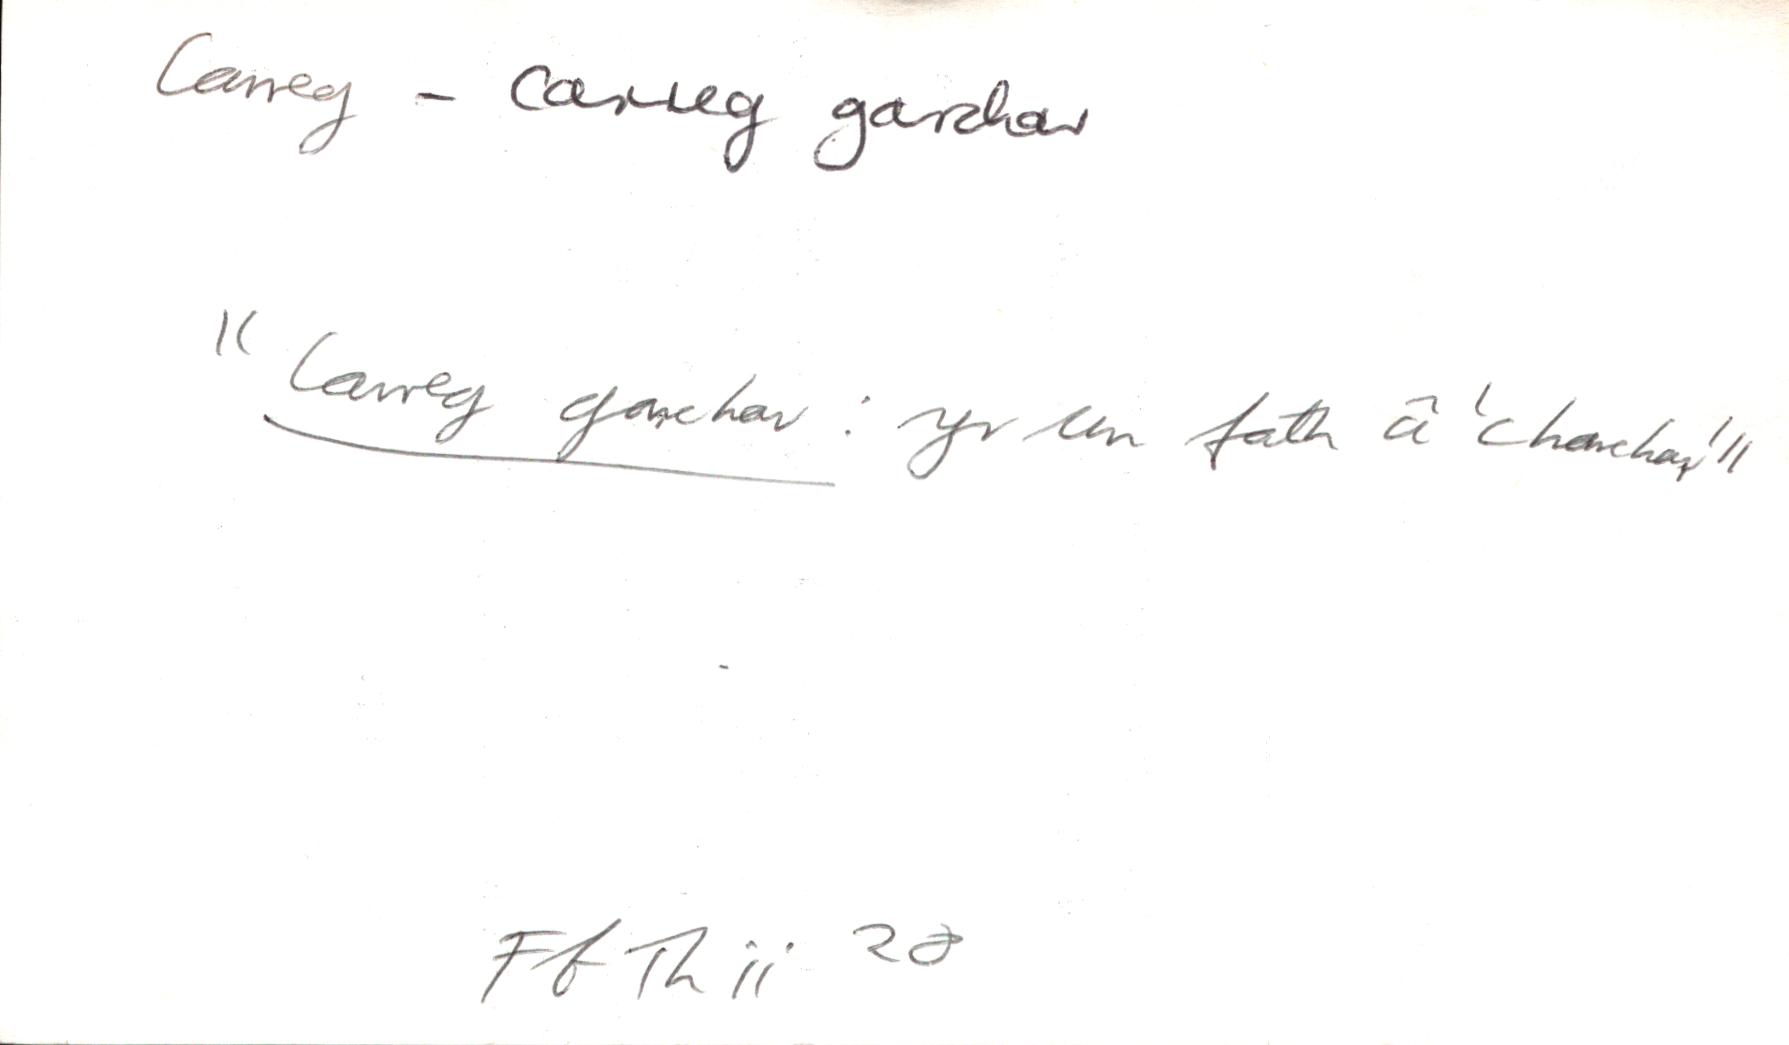 Carreg - carreg garchar
"Carreg garchar : yr un fath â 'charchar'"
Ff Th ii 28